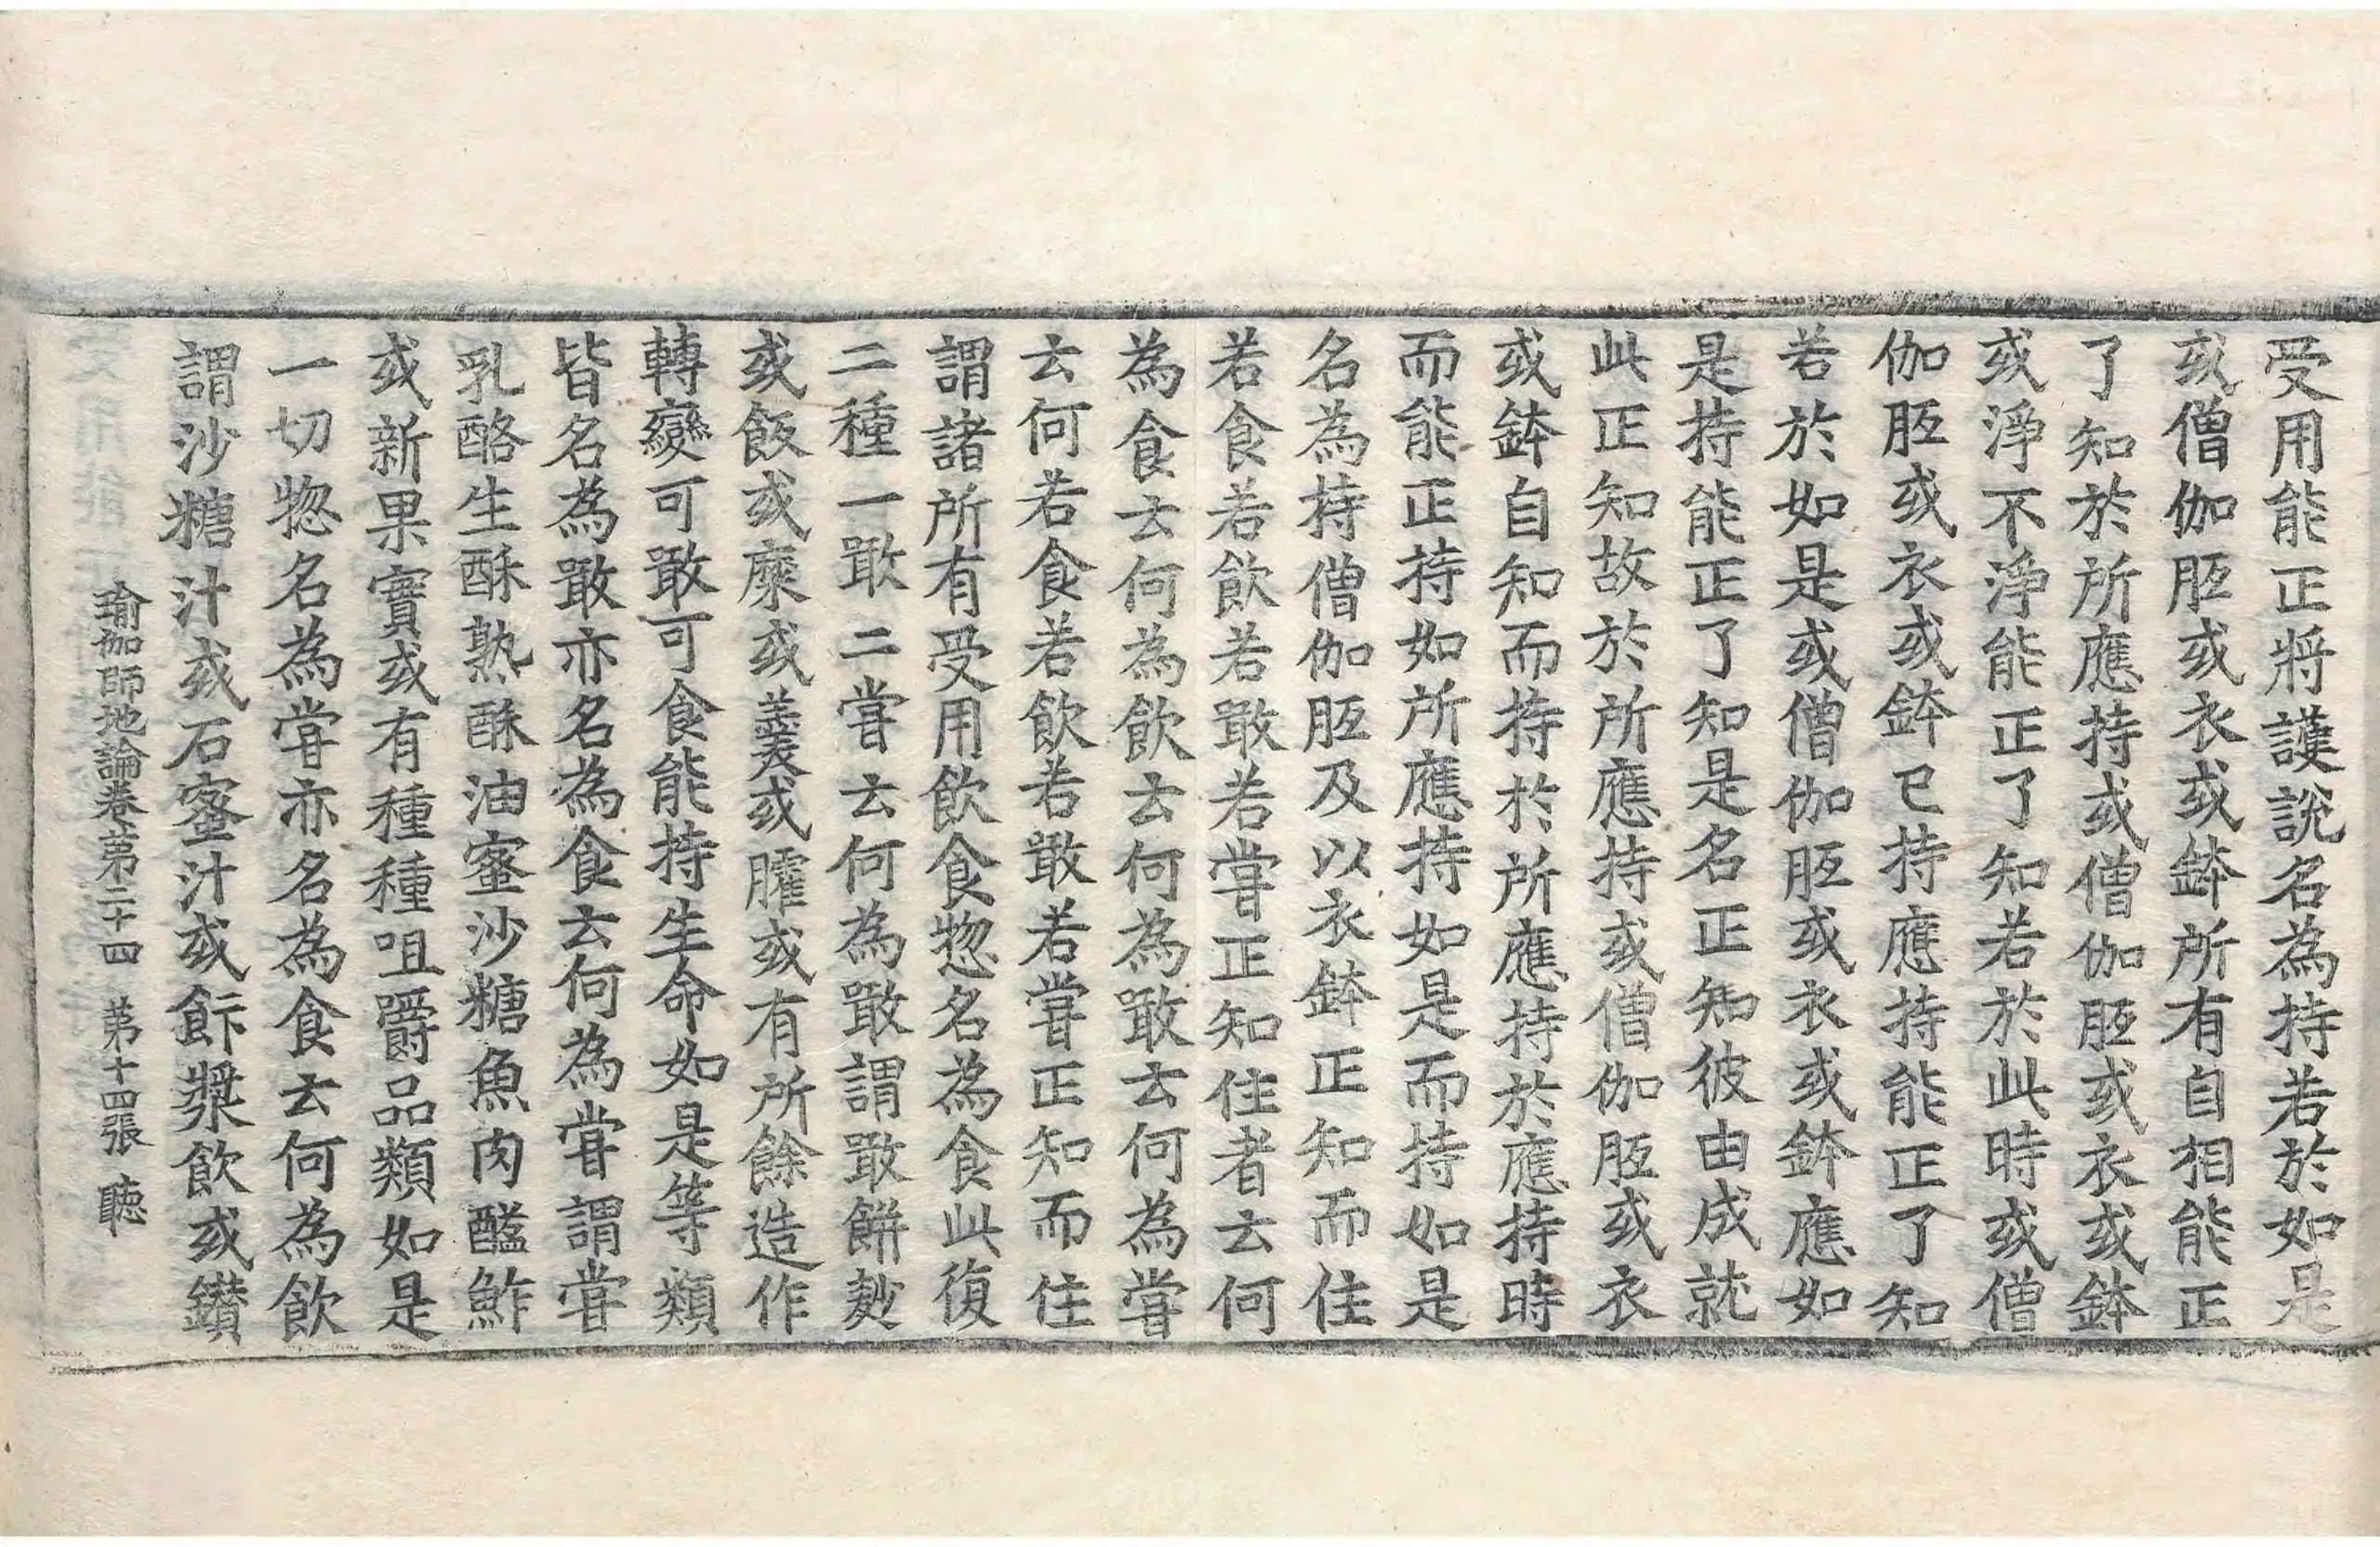 受用能正將護說名為持若於如是
或僧伽胝或衣或鉢所有自相能正
了知於所應持或僧伽胝或衣或鉢
或淨不淨能正了知若於此時或僧
伽胝或衣或鉢已持應持能正了知
若於如是或僧伽胝或衣或鉢應如
是持能正了知是名正知彼由成就
此正知故於所應持或僧伽胝或衣
或鉢自知而持於所應持於應持時
而能正持如所應持如是而持如是
名為持僧伽胝及以衣鉢正知而住
若食若飲若噉若嘗正知住者云何
為食云何為飲云何為噉云何為嘗
云何若食若飲若噉若嘗正知而住
謂諸所有受用飲食惣名為食此復
二種一噉二嘗云何為噉謂噉餅麨
或飯或糜或羹或臛或有所餘造作
轉變可噉可食能持生命如是等類
皆名為噉亦名為食云何為嘗謂嘗
乳酪生酥熟酥油蜜沙糖魚肉醢鮓
或新果實或有種種咀嚼品類如是
一切惣名為嘗亦名為食云何為飲
謂沙糖汁或石蜜汁或飰漿飲或鑽
瑜伽師地論卷第二十四 第十四張 聽